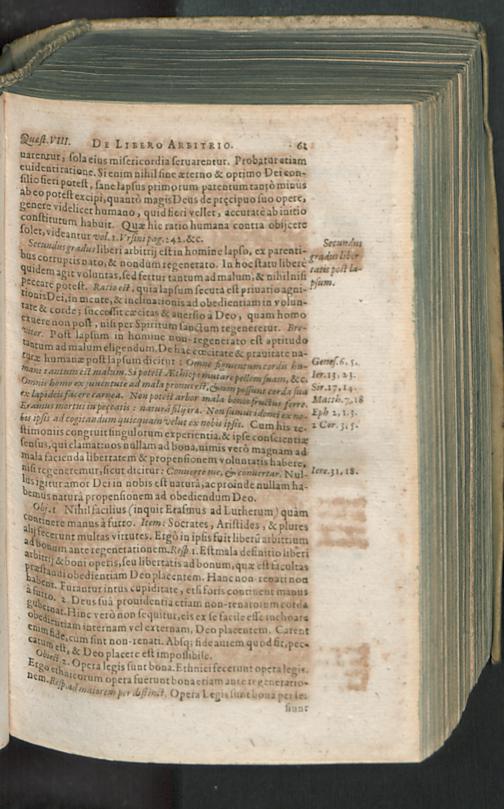 Quæst. VIII. DE LIBERO ARBITRIO. 61
uarentur, sola eius misericordia seruarentur. Probatur etiam
euidenti ratione. Si enim nihil sine æterno & optimo Dei con-
silio fieri potest, sane lapsus primorum parentum tantò minus
ab eo potest excipi, quantò magis Deus de pręcipuo suo opere,
genere videlicet humano, quid fieri vellet, accuratè ab initio
constitutum habuit. Quæ hîc ratio humana contra obijcere
solet, videantur vol. 1. Vrsini pag. 242. &c.
Secundus gradus liberi arbitrij est in homine lapso, ex parenti-
bus corruptis nato, & nondum regenerato. In hoc statu libere
quidem agit voluntas, sed fertur tantum ad malum, & nihil nisi
peccare potest. Ratio est, quia lapsum secuta est priuatio agni-
tionis Dei, in mente, & inclinationis ad obedientiam in volun-
tate & corde; successit cæcitas & auersio a Deo, quam homo
exuere non post, nisi per Spiritum sanctum regeneretur. Bre-
viter. Post lapsum in homine non-regenerato est aptitudo
tantum ad malum eligendum. De hac cœcitate & prauitate na-
turæ humanæ post lapsum dicitur: Omne figmentum cordis hu-
mani tantum est malum. Si potest Æthiops mutare pellem suam, &c.
Omnis homo ex juventute ad mala pronus est, & non possunt corda sua
ex lapideis facere carnea. Non potest arbor mala bonos fructus ferre.
Eramus mortui in peccatis: naturâ filij iræ. Non sumus idonei ex no-
bis ipsis ad cogitandum quicquam velut ex nobis ipsis. Cum his te-
stimoniis congruit singulorum experientia, & ipse conscientiæ
sensus, qui clamat nos nullam ad bona, nimis verò magnam ad
mala facienda libertatem & propensionem voluntatis habere,
nisi regeneremur, sicut dicitur: Converte me, & convertar. Nul-
lus igitur amor Dei in nobis est naturâ, ac proinde nullam ha-
bemus naturâ propensionem ad obediendum Deo.
Obj. 1 Nihil facilius (inquit Erasmus ad Lutherum) quàm
continere manus à furto. Item: Socrates, Aristides, & plures
alij fecerunt multas virtutes. Ergò in ipsis fuit liberũ arbitrium
ad bonum ante regenerationem. Resp. 1. Est mala definitio liberi
arbitrij & boni operis, seu libertatis ad bonum, quæ est facultas
præstandi obedientiam Deo placentem. Hanc non-renati non
habent. Furantur intus cupiditate, etsi foris continent manus
à furto. 2. Deus suâ prouidentia etiam non-renatorum corda
gubernat. Hinc verò non sequitur, eis ex se facile esse inchoare
obedientiam internam vel externam, Deo placentem. Carent
enim fide, cum sint non-renati. Absq; fide autem quod fit, pec-
catum est, & Deo placere est impossibile.
Obiect. 2. Opera legis sunt bona. Ethnici fecerunt opera legis.
Ergo ethnicorum opera fuerunt bona etiam ante regeneratio-
nem. Resp. ad maiorem per distinct. Opera Legis sunt bona per se;
sunt
Secundus
gradus liber
tatis post la-
psum.
Genes. 6. 5.
Ier. 13, 23.
Sir. 17, 14.
Matth. 7, 18
Eph 2, 1.3.
2 Cor. 3, 5.
Iere. 31, 18.